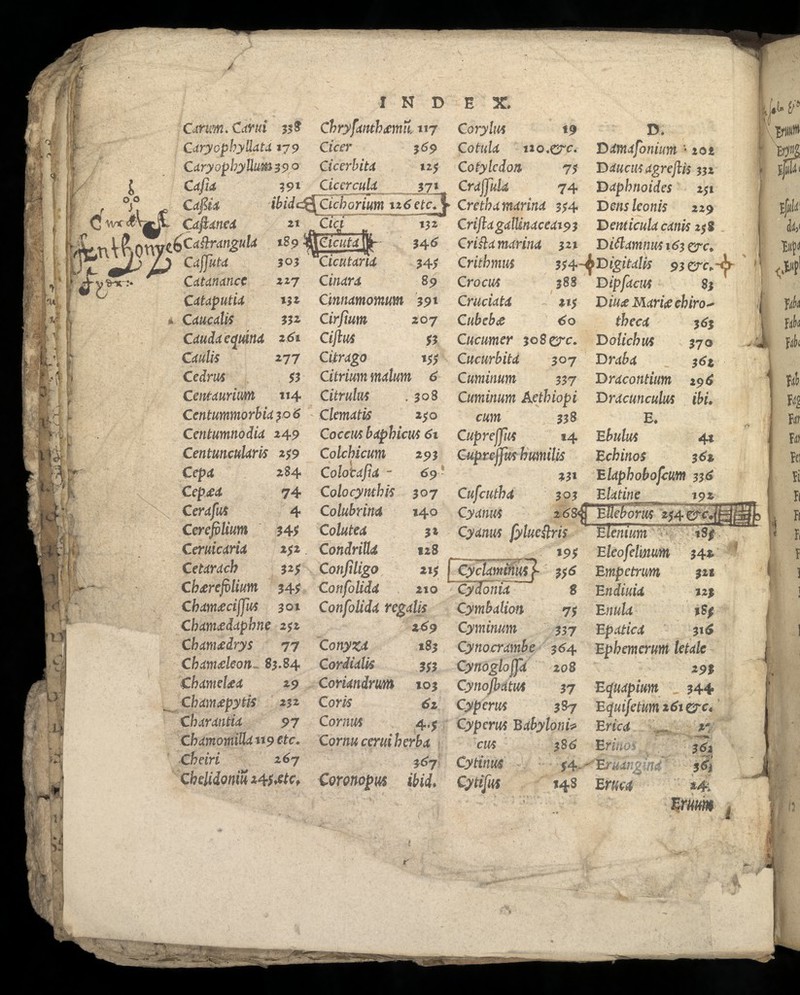 INDEX.
Carum. Carui 338
Caryophyllata 179
Caryophyllum 390
Casia 391
Caßia ibid
Castanea 21
Castrangula 189
Cassuta 303
Catanance 227
Cataputia 132
Caucalis 332
Cauda equina 261
Caulis 277
Cedrus 53
Centaurium 114
Centummorbia 306
Centumnodia 249
Centuncularis 259
Cepa 284
Cepæa 74
Cerasus 4
Cerefolium 345
Ceruicaria 252
Cetarach 325
Chærefolium 345
Chamæcissus 301
Chamædaphne 252
Chamædrys 77
Chamæleon 83.84
Chamelæa 29
Chamæpytis 232
Charantia 97
Chamomilla 119 etc.
Cheiri 267
Chelidoniũ 245.etc.
Chrysanthæmũ 117
Cicer 369
Cicerbita 125
Cicercula 371
Cichorium 126 etc.
Cici 132
Cicuta 346
Cicutaria 345
Cinara 89
Cinnamomum 391
Cirsium 207
Cistus 53
Citrago 155
Citrium malum 6
Citrulus 308
Clematis 250
Coccus baphicus 61
Colchicum 293
Colocasia 69
Colocynthis 307
Colubrina 140
Colutea 32
Condrilla 128
Consiligo 215
Consolida 210
Consolida regalis
269
Conyza 183
Cordialis 353
Coriandrum 103
Coris 62
Cornus 4.5
Cornu cerui herba
367
Coronopus ibid.
Corylus 19
Cotula 120.&c.
Cotyledon 75
Crassula 74
Cretha marina 354
Crista gallinacea 193
Crista marina 321
Crithmus 354
Crocus 388
Cruciata 215
Cubebæ 60
Cucumer 308 &c.
Cucurbita 307
Cuminum 337
Cuminum Aethiopi
cum 338
Cupressus 14
Cupressus humilis
231
Cuscutha 303
Cyanus 268
Cyanus syluestris
195
Cyclaminus 356
Cydonia 8
Cymbalion 75
Cyminum 337
Cynocrambe 364
Cynoglossa 208
Cynosbatus 37
Cyperus 387
Cyperus Babyloni-
cus 386
Cytinus 54
Cytisus 148
D.
Damasonium 202
Daucus agrestis 332
Daphnoides 251
Dens leonis 229
Denticula canis 258
Dictamnus 163 &c.
Digitalis 93 &c.
Dipsacus 83
Diuæ Mariæ chiro-
theca 363
Dolichus 370
Draba 362
Dracontium 296
Dracunculus ibi.
E.
Ebulus 42
Echinos 362
Elaphoboscum 336
Elatine 192
Elleborus 254 &c.
Elenium 185
Eleoselinum 342
Empetrum 321
Endiuia 123
Enula 185
Epatica 316
Ephemerum letale
293
Equapium 344
Equisetum 261 &c.
Erica
Erinos 362
Eruangina 363
Eruca 24
Eruum